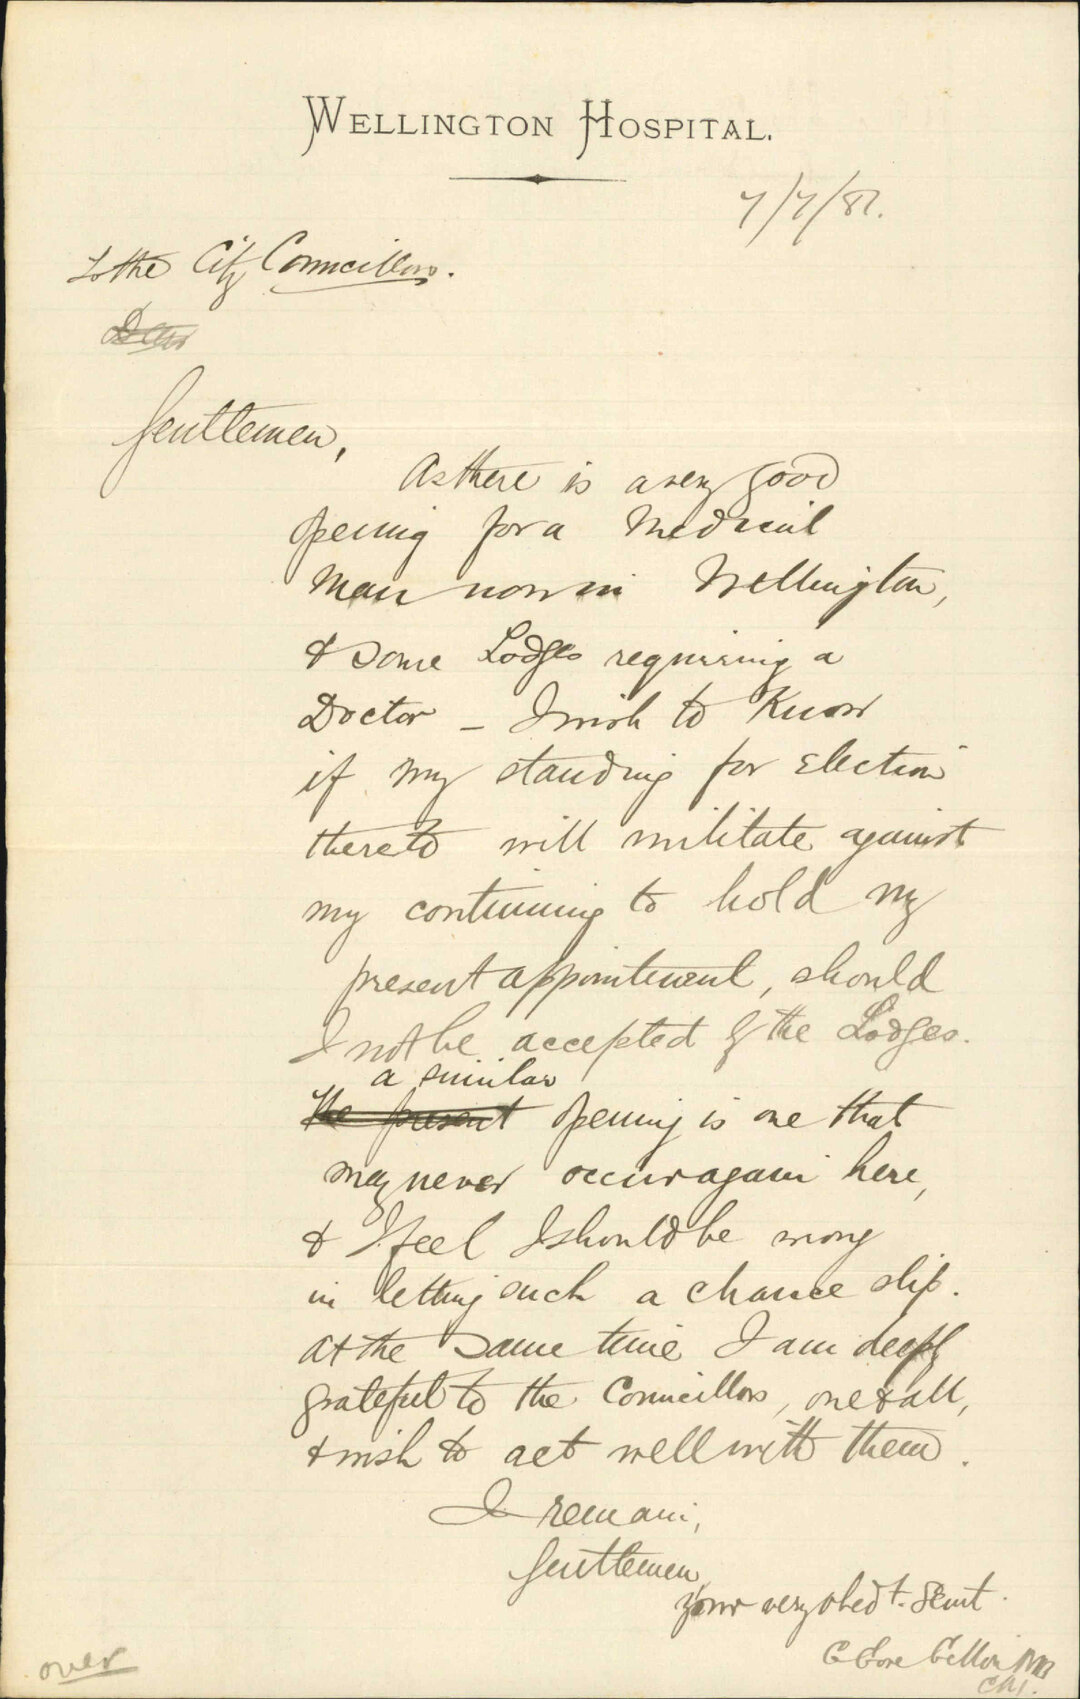 WELLINGTON HOSPITAL.
7/7/81.
To the City Councillors.
Dear
Gentlemen,
As there is a very good
opening for a Medical
Man now in Wellington,
& some Lodges requiring a
Doctor – I wish to Know
if my standing for Election
thereto will militate against
my continuing to hold my
present appointment, should
I not be accepted by the Lodges.
a similar
The present opening is one that
may never occur again here,
& I feel I should be wrong
in letting such a chance slip.
At the same time I am deeply
grateful to the Councillors, one & all,
& wish to act well with them.
I remain,
Gentlemen,
Your very obedt. Servt.
Gore Gillon MB
CM.
over